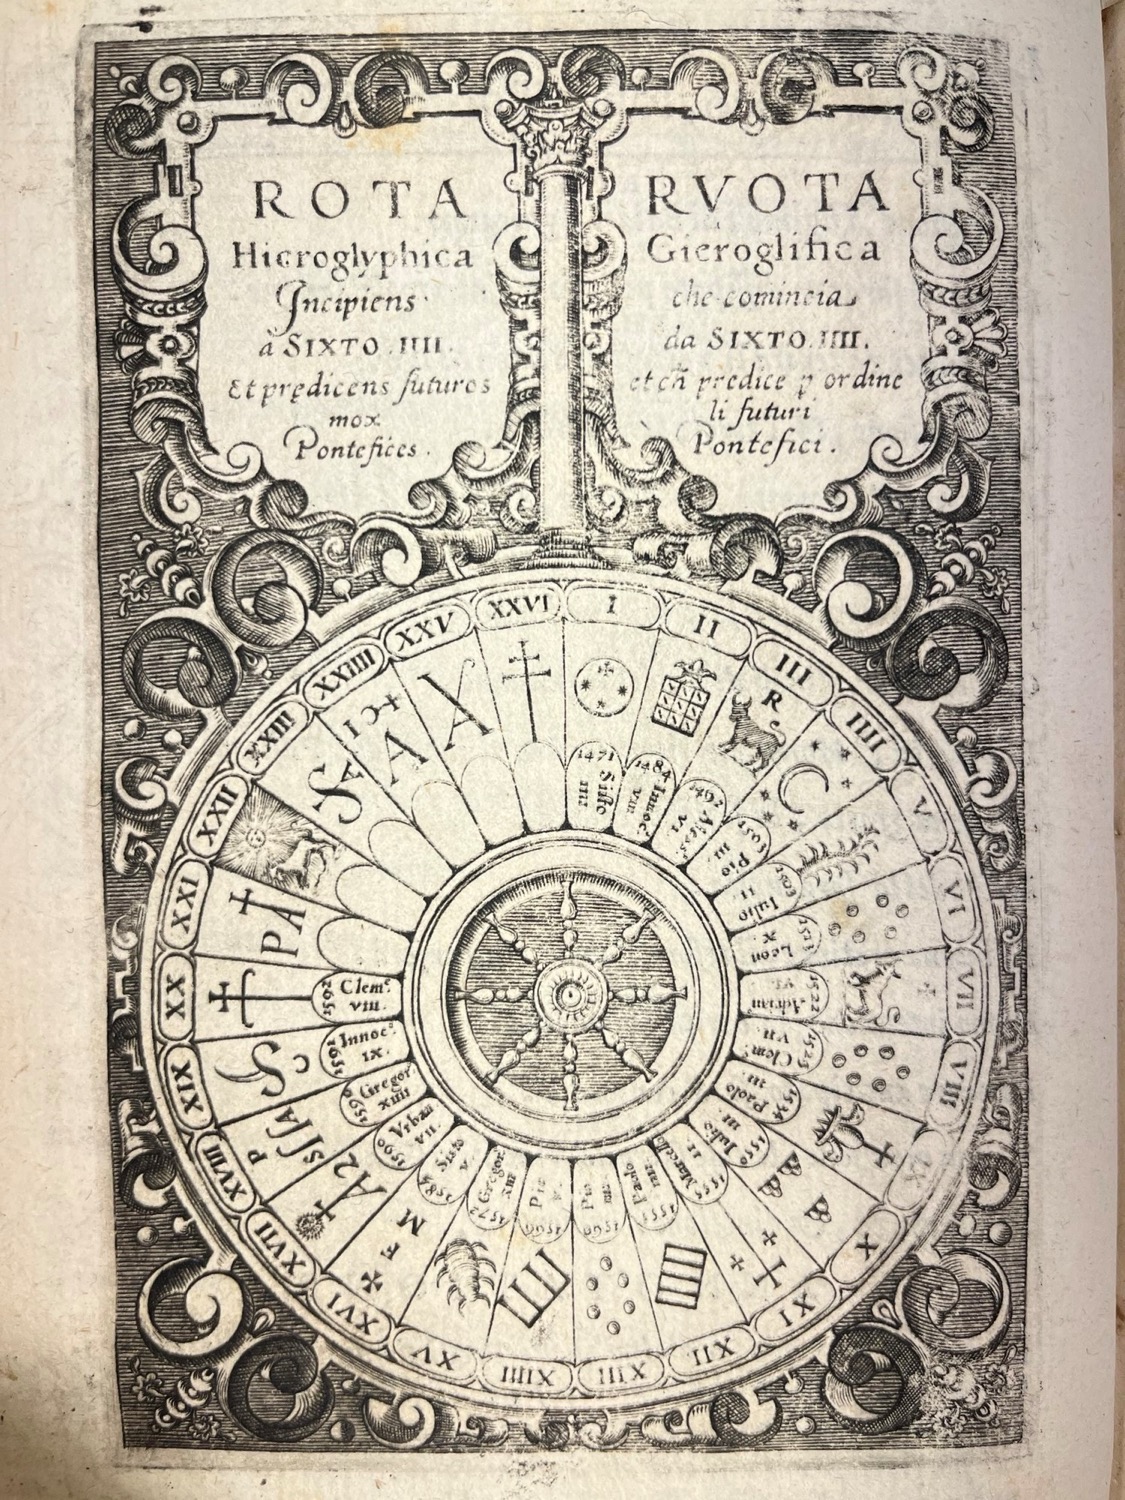 ROTA
Hieroglyphica
Incipiens
á SIXTO .IIII.
Et prędicens futuros
mox
Pontefices.
RVOTA
Gieroglifica
che comincia
da SIXTO.IIII.
et ch̃ predice ꝑ ordine
li futuri
Pontefici.
I
1471
Sisto
IIII
II
1484
Innoc
VIII
III
R
1492
VI
IIII
Pio
III
V
Iulio
II
VI
Leon
X
VII
1522
Adrian
VI
VIII
1523
Clem.
VII
IX
Paolo
III
X
1550
Iulio
III
XI
1555
Marcelo
II
XII
1555
Paolo
IIII
XIII
Pio
IIII
XIIII
Pio
V
XV
1572
Gregor
XIII
XVI
F M
1585
Sisto
V.
XVII
A
1590
Vrban
VII.
XVIII
1590
Gregor
XIIII
XIX
1591
Innoc.
IX.
XX
1592
Clem.
VIII.
XXI
P A
XXII
XXIII
XXIIII
A
XXV
XXVI